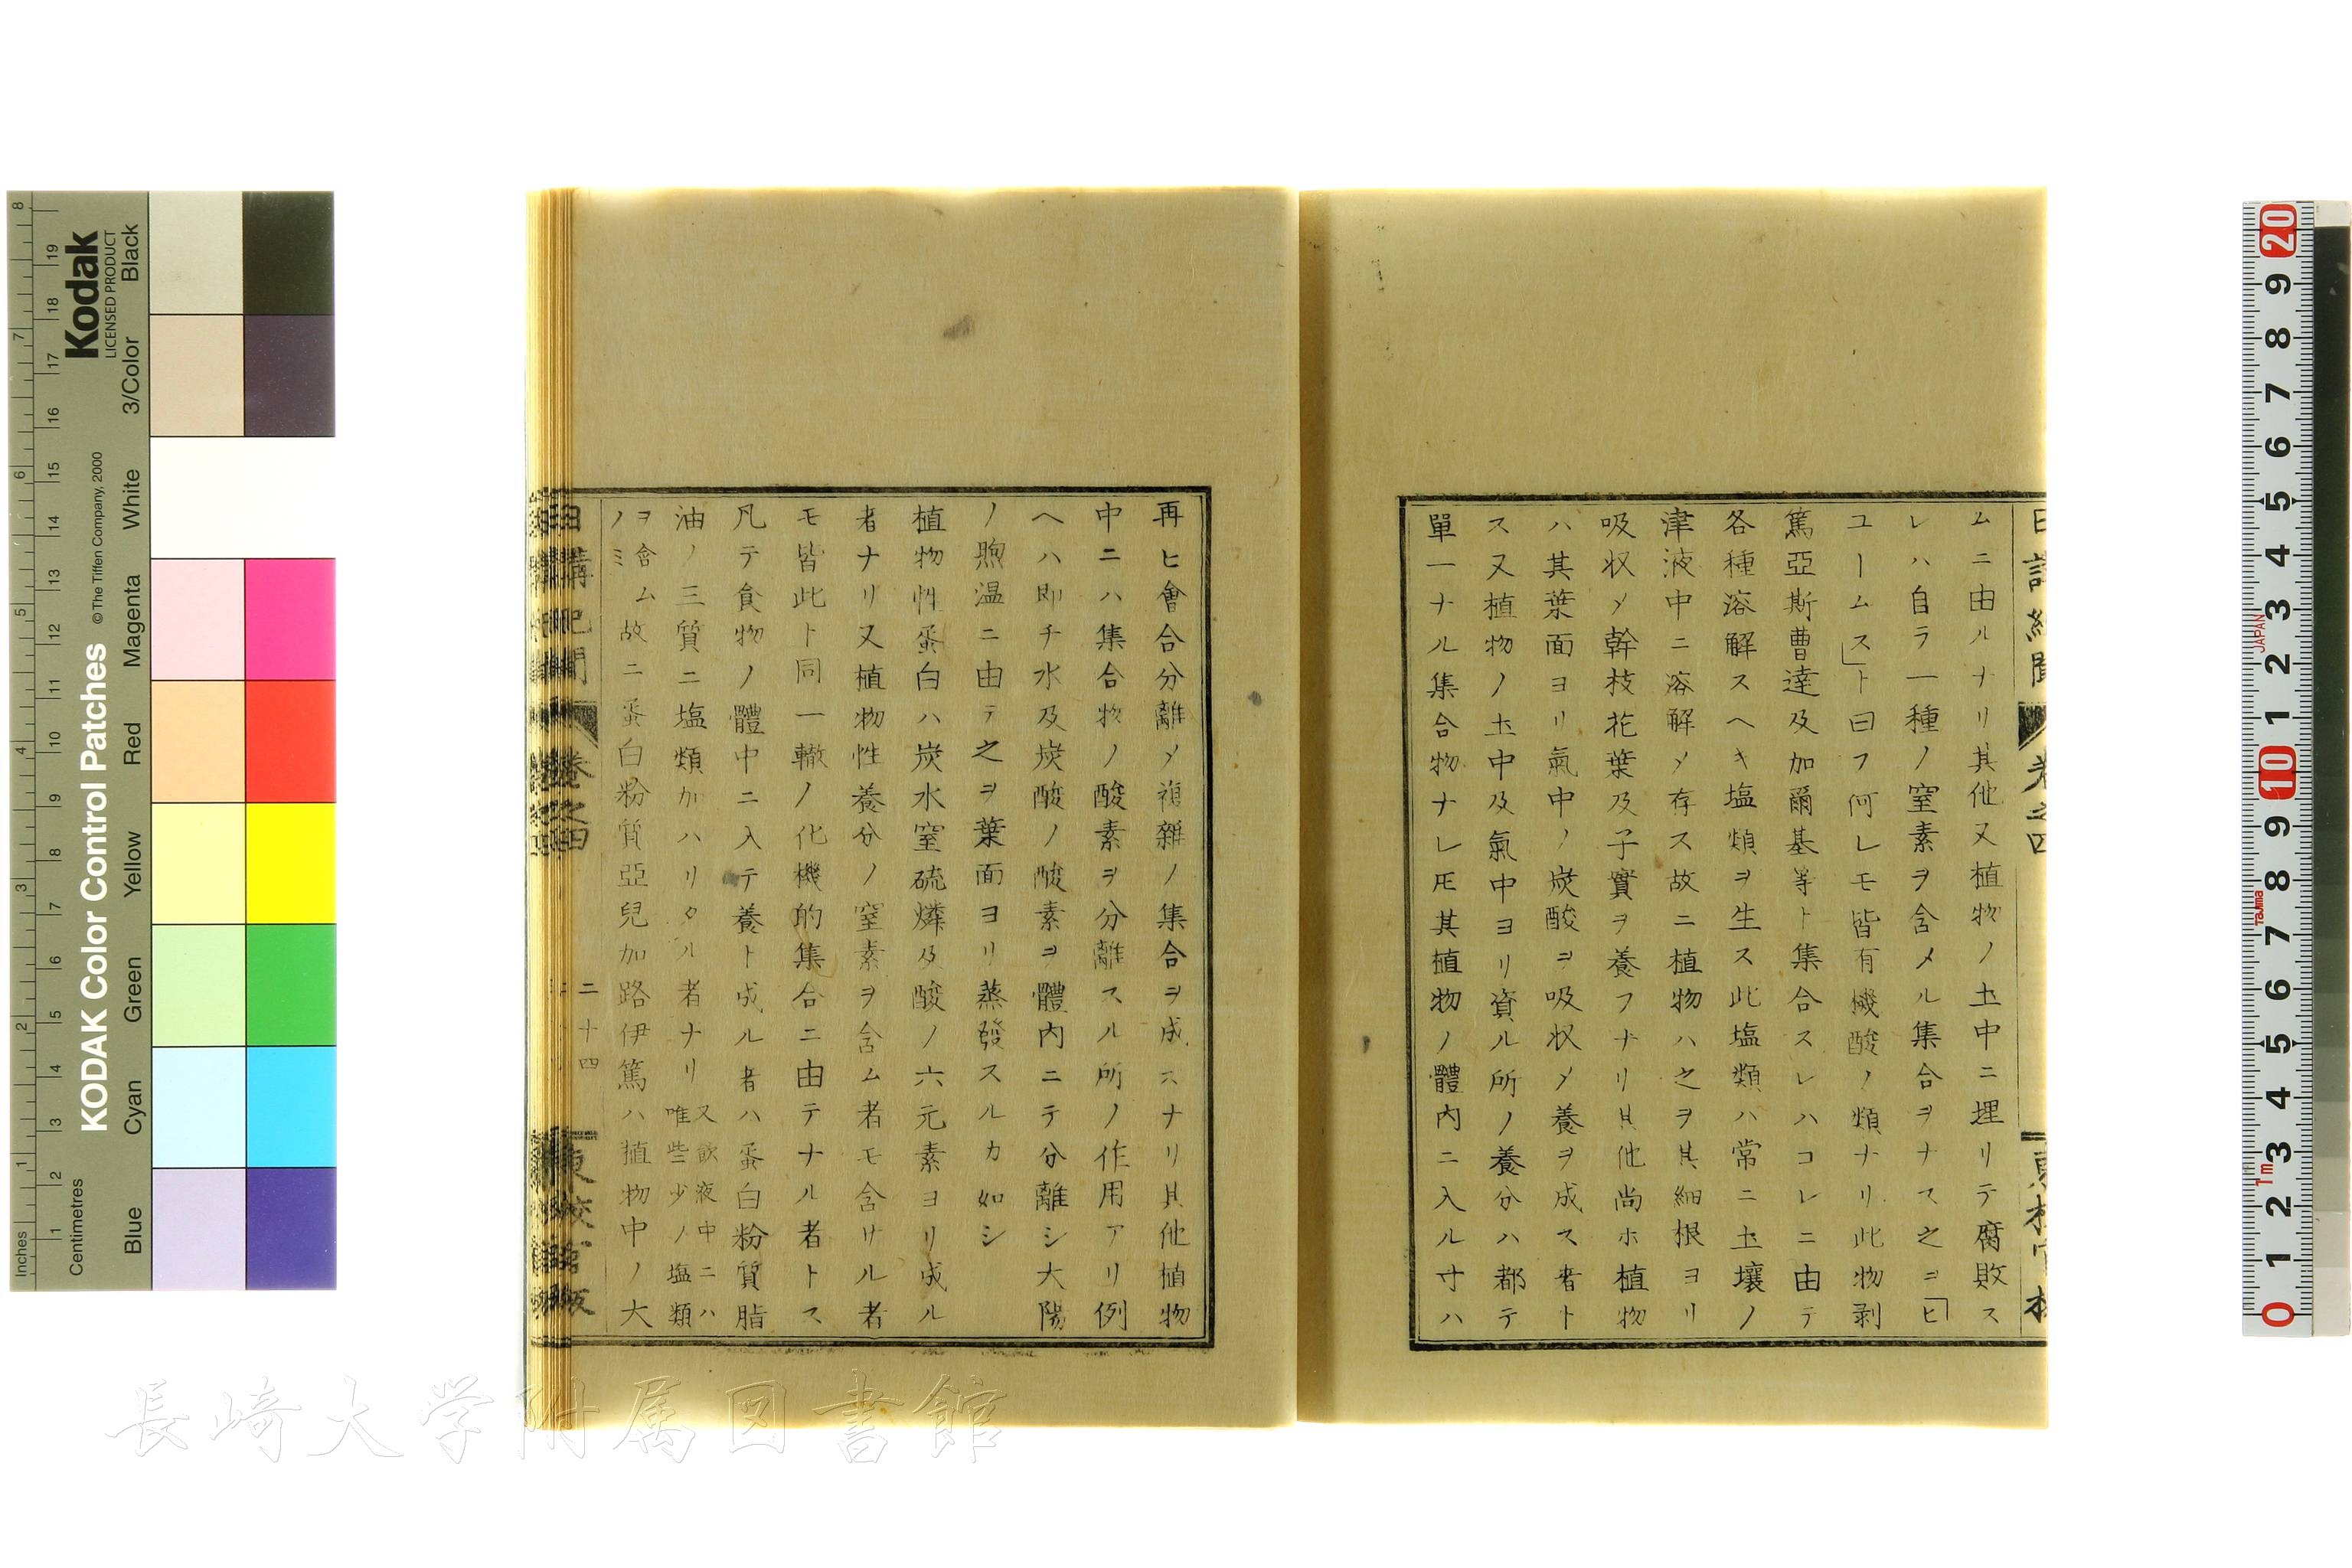 ムニ由ルナリ其他又植物ノ土中ニ埋リテ腐敗ス
レハ自ラ一種ノ窒素ヲ含メル集合ヲナス之ヲ「ヒ
ユームス」ト曰フ何レモ皆有機酸ノ類ナリ此物剥
篤亞斯曹達及加爾基等ト集合スレハコレニ由テ
各種溶解スヘキ塩類ヲ生ス此塩類ハ常ニ土壤ノ
津液中ニ溶解メ存ス故ニ植物ハ之ヲ其細根ヨリ
吸収メ幹枝花葉及子實ヲ養フナリ其他尚ホ植物
ハ其葉面ヨリ氣中ノ炭酸ヲ吸収メ養ヲ成ス者ト
ス又植物ノ土中及氣中ヨリ資ル所ノ養分ハ都テ
單一ナル集合物ナレ𪜈其植物ノ體内ニ入ル寸ハ
再ヒ會合分離メ複雜ノ集合ヲ成スナリ其他植物
中ニハ集合物ノ酸素ヲ分離スル所ノ作用アリ例
ヘハ即チ水及炭酸ノ酸素ヲ體内ニテ分離シ大陽
ノ煦温ニ由テ之ヲ葉面ヨリ蒸發スルカ如シ
植物性蛋白ハ炭水窒硫燐及酸ノ六元素ヨリ成ル
者ナリ又植物性養分ノ窒素ヲ含ム者モ含サル者
モ皆此ト同一轍ノ化機的集合ニ由テナル者トス
凡テ食物ノ體中ニ入テ養ト成ル者ハ蛋白粉質脂
油ノ三質ニ塩類加ハリタル者ナリ又飲液中ニハ唯些少ノ塩類
ヲ含ムノミ故ニ蛋白粉質亞兒加路伊篤ハ植物中ノ大
日講紀聞 卷之四 二十四 東校官版
日講紀聞 卷之四
長崎大学附属図書館
KODAK Color Control Patches
© The Tiffen Company, 2000
Kodak
LICENSED PRODUCT
Inches
Centimetres
Blue Cyan Green Yellow Red Magenta White 3/Color Black
JAPAN
Tajima
1m